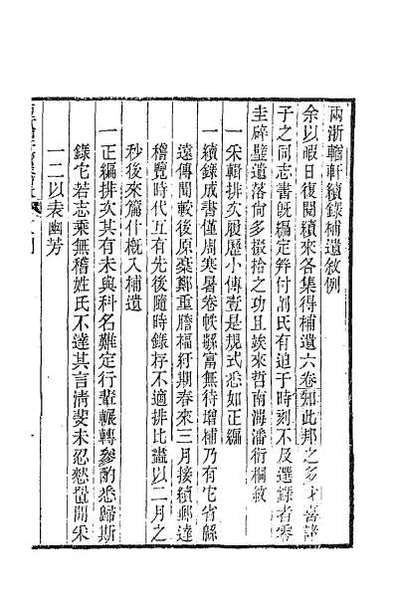 兩浙輶軒續錄補遺敘例
余以暇日復閱續來各集得補遺六卷知此邦之多才喜諸
子之同志書旣編定幷付剞氏有迫于時刻不及選錄者零
圭碎璧遺落尙多掇拾之功且竢來哲南海潘衍桐敘
一采輯排次履歷小傳壹是規式悉如正編
一續錄成書僅周寒暑卷帙緐富無待增補乃有它省緜
遠傳聞較後原稾鄭重謄福紆期春來三月接續郵達
稽覽時代互有先後隨時錄存不適排比盡以二月之
秒後來篇什槪入補遺
一正編排次其有未與科名難定行輩輾轉參酌悉歸斯
錄它若志乘無稽姓氏不達其言淸斐未忍愸置閒采
一二以表幽芳